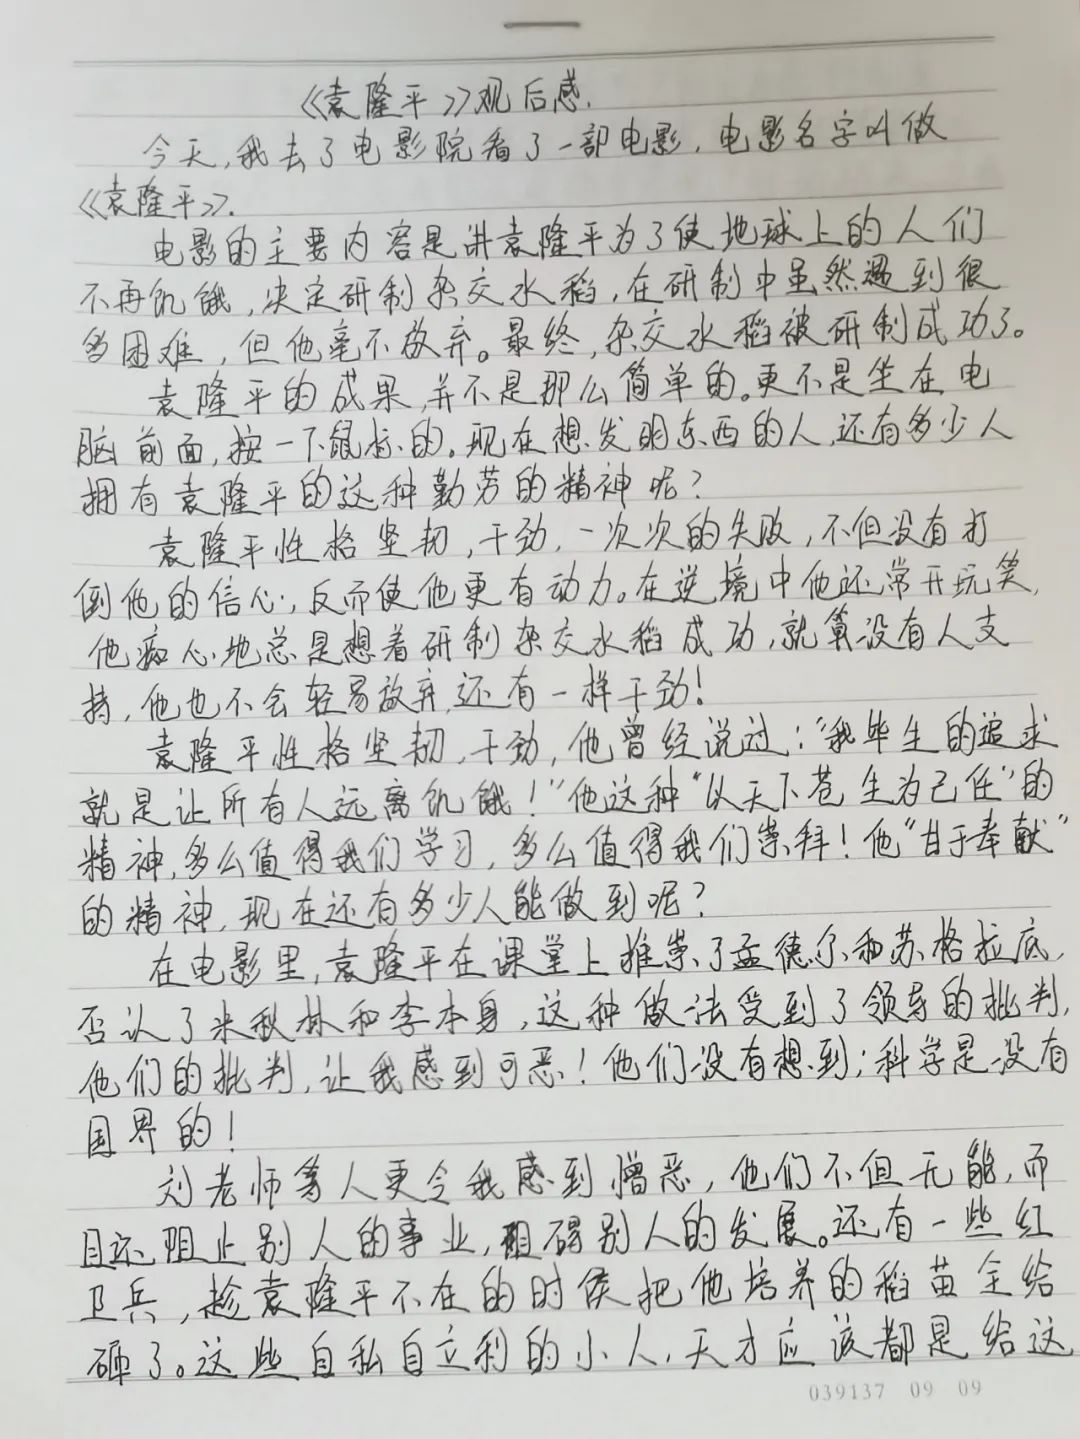 《袁隆平》观后感.
今天,我去了电影院看了一部电影,电影名字叫做
《袁隆平》.
电影的主要内容是讲袁隆平为了使地球上的人们
不再饥饿,决定研制杂交水稻,在研制中虽然遇到很
多困难,但他毫不放弃。最终,杂交水稻被研制成功了。
袁隆平的成果,并不是那么简单的。更不是坐在电
脑前面,按一下鼠标的。现在想发明东西的人,还有多少人
拥有袁隆平的这种勤劳的精神呢?
袁隆平性格坚韧,干劲,一次次的失败,不但没有打
倒他的信心,反而使他更有动力。在逆境中他还常开玩笑,
他痴心地总是想着研制杂交水稻成功,就算没有人支
持,他也不会轻易放弃,还有一样干劲!
袁隆平性格坚韧,干劲,他曾经说过:“我毕生的追求
就是让所有人远离饥饿!”他这种“以天下苍生为己任”的
精神,多么值得我们学习,多么值得我们崇拜!他“甘于奉献”
的精神,现在还有多少人能做到呢?
在电影里,袁隆平在课堂上推崇了孟德尔和苏格拉底,
否认了米秋林和李本身,这种做法受到了领导的批判,
他们的批判,让我感到可恶!他们没有想到:科学是没有
国界的!
刘老师等人更令我感到憎恶,他们不但无能,而
且还阻止别人的事业,阻碍别人的发展。还有一些红
卫兵,趁袁隆平不在的时侯把他培养的稻苗全给
砸了。这些自私自立利的小人,天才应该都是给这
039137 09 09